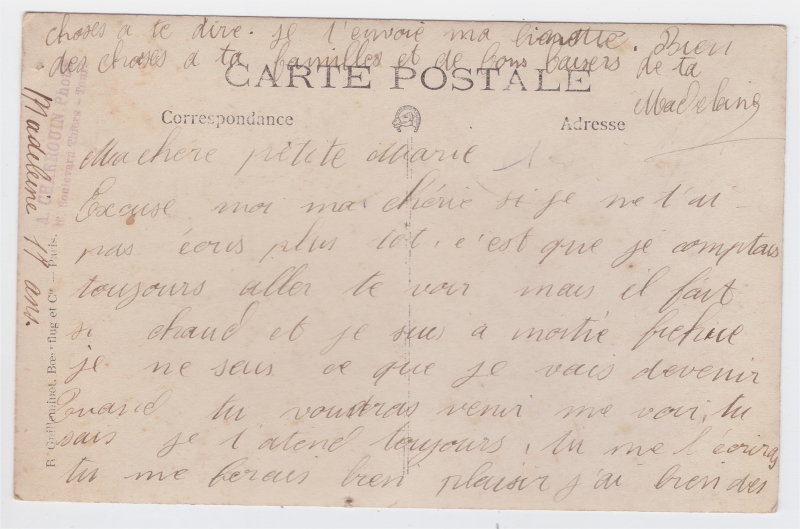 choses a te dire. je t'envoie ma bien
des choses a ta familles et de bons baisers de ta
Bien
Madelaine
CARTE POSTALE
Correspondance
Adresse
Ma chère pétite Marie
Excuse moi ma chérie si je ne t'ai
pas écris plus tôt. c'est que je comptais
toujours aller te voir mais il fait
si chaud et je suis a moitié fichue
je ne sais ce que je vais devenir
Quand tu voudras venir me voir, tu
sais je t'atend toujours, tu me l'écriras
tu me ferais bien plaisir j'ai bien des
Madeleine 17 ans.
Phot
Boulevard
R. Guilleminot, Bœspflug et Cie — Paris.